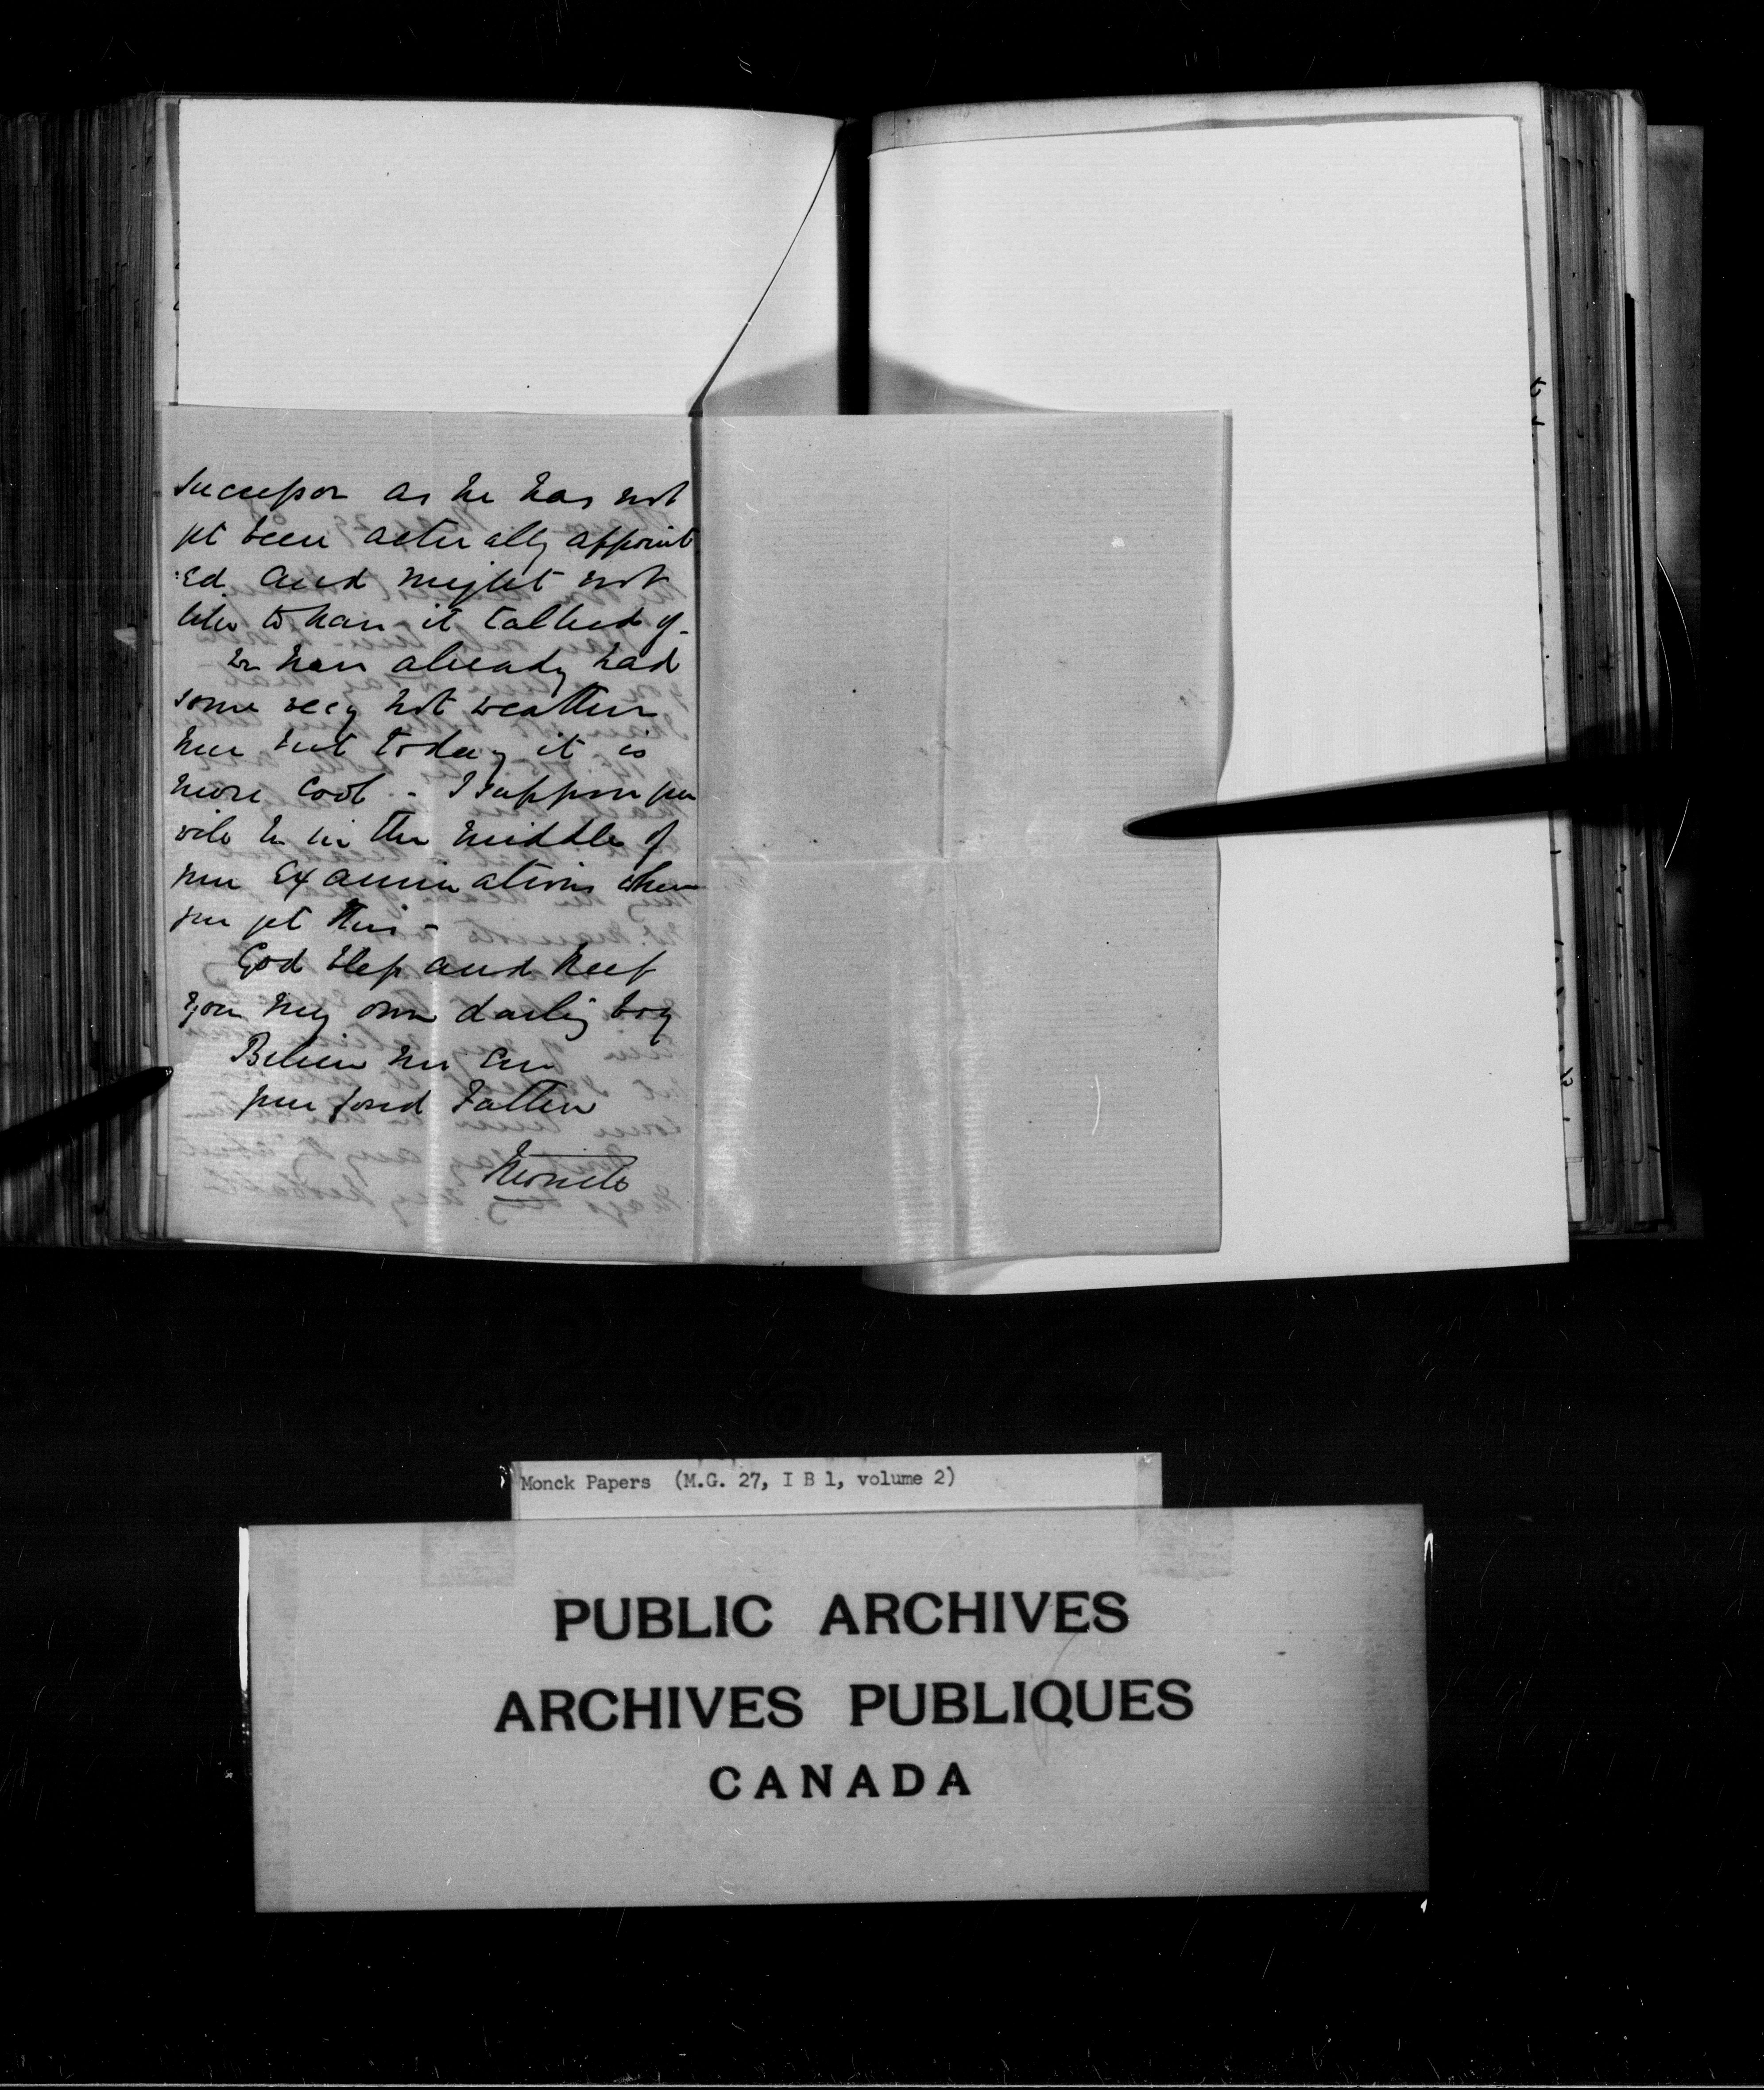 successor as he has not
yet been actually appoint
:ed and might not
like to have it talked of -
We have already had
some very hot weather
here but today it is
more cool - I suppose you
will be in the middle of
your Examinations when
you get this -
God bless and keep
you my own darling boy
Believe me ever
your fond Father
Monck
Monck Papers (M.G. 27, I B 1, volume 2)
PUBLIC ARCHIVES
ARCHIVES PUBLIQUES
CANADA